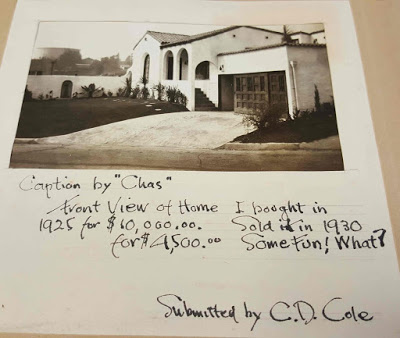 Caption by "Chas"
Front View of Home I bought in
1925 for $60,000.00. Sold it in 1930
for $4,500.00 Some Fun! What?
Submitted by C.D. Cole